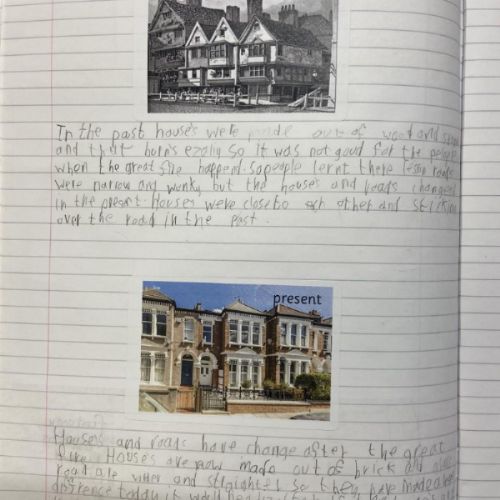 In the past houses were made out of wood and straw
and that born's ezaliy so it was not good for the people
when the great fire happend so people lernt there lesson roads
were narrow and wonky but the houses and roads changed
in the present. Houses were close to ech other and sticking
over the road in the past.
present
Houses and roads have change after the great
fire Houses are now made out of brick and
road are wider and straighter so they have made a
difrence today it would